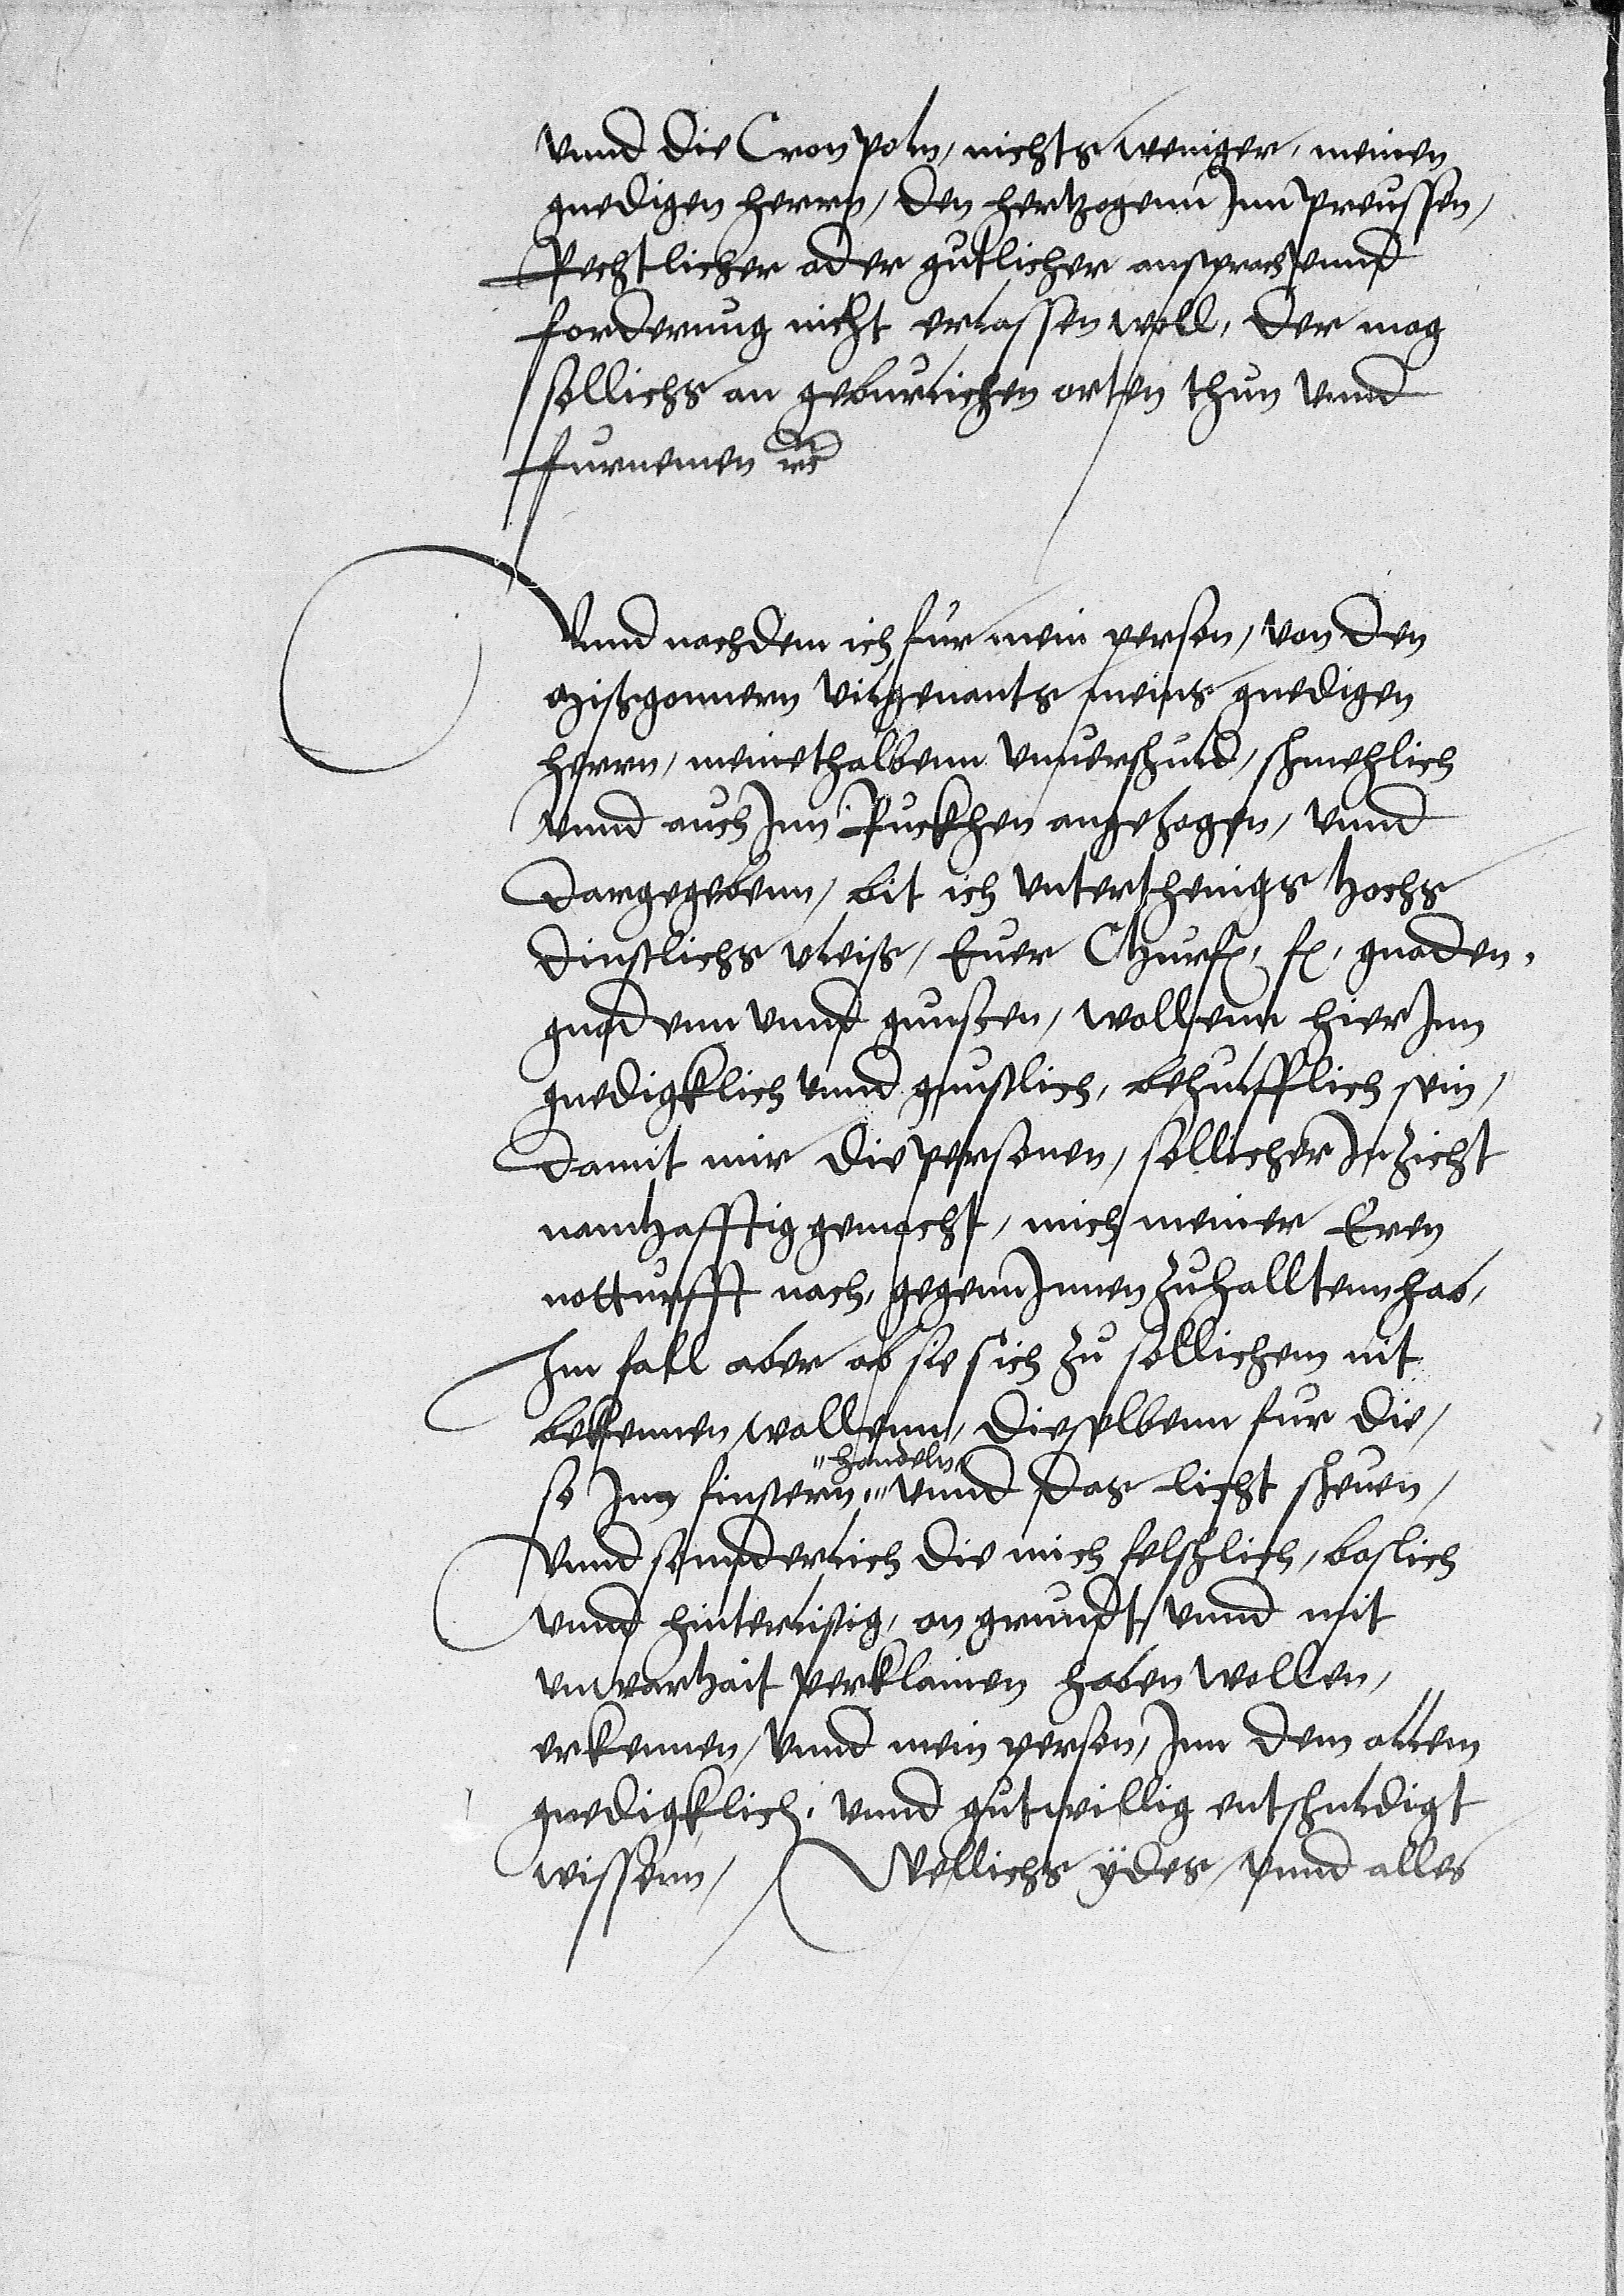 vnnd die Cron poln, nichts weniger, meinen
gnedigen herrn, den hertzogenn Inn preussen,
Rechtlicher ader gutlicher ansprach vnnd
forderung nicht erlassen woll, der mag
sollichs an geburlichen orten thun vnnd
furnemen etc
Vnnd nachdem ich fur mein person, von den
Mißgonnern vilgenants meins gnedigen
herrn, meinethalbenn vnuerschuld, schmehlich
vnnd auch Inn Ruckhen angezogen, vnnd
dargegebenn, bit ich vnterthenigs hochs
dinstlichs vleiss, Euer Churf. f. gnaden,
gnadenn vnnd gunsten, wollenn hierInn
gnedigklich vnnd gunstlich, behulfflich sein,
damit mir die personen, sollicher Inzicht
namhafftig gemacht, mich meiner Eren
notturfft nach, gegenn Innen zuhalltenn hab,
Im fall aber ab sie sich zu sollichem nit
bekennen wolltenn, dieselbenn fur die,
so Inn finstern handeln vnnd das licht scheuen,
vnnd sonnderlich die mich felschlich, boslich
vnnd hinterlistig, on grundt vnnd mit
vnwarhait verklainen haben wollen,
erkennen, vnnd mein person, Inn dem allem
gnedigklich, vnnd gutwillig entschuldigt
wissenn, Wellichs ydes, vnnd alles